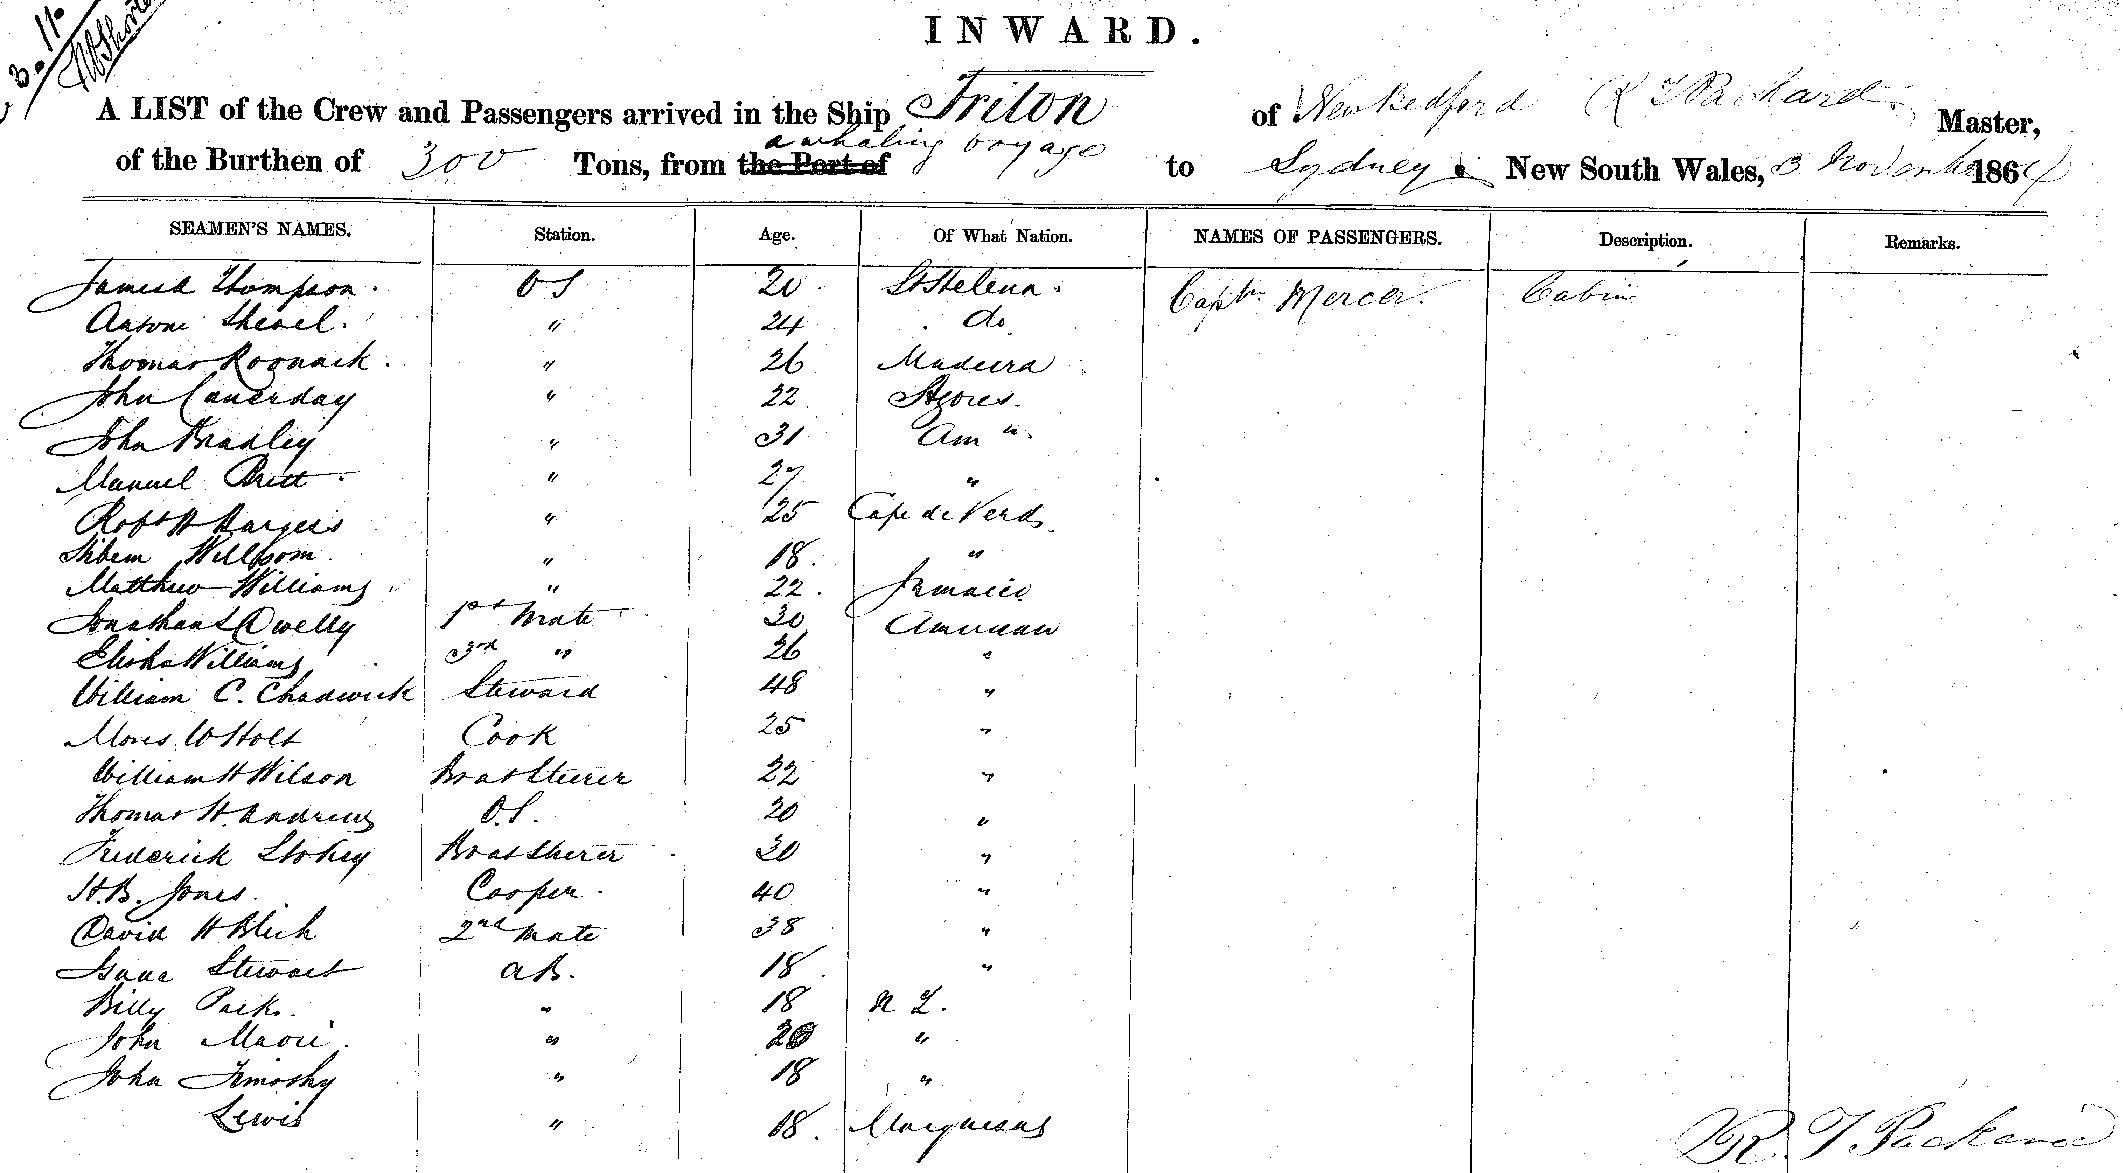 3. 11.
INWARD.
A LIST of the Crew and Passengers arrived in the Ship Triton of New Bedford R T Packard Master,
of the Burthen of 300 Tons, from the Port of a whaling voyage to Sydney, New South Wales, 3 November 1864
SEAMEN'S NAMES. Station. Age. Of What Nation. NAMES OF PASSENGERS. Description. Remarks.
James Thompson. OS 20 St Helena. Capt. Mercer. Cabin
Antone 24 do
Thomas " 26 Madeira
John " 22 Azores.
John Bradley " 31 Am n.
Manuel Britt " 27 "
Robt H Burgess " 25 Cape de Verds
Willsom " 18. "
Matthew Williams " 22. Jamaica
Jonathan L Dwelly 1st Mate 30 American
Elisha Williams 3rd " 26 "
William C. Chadwick Steward 48 "
Moses W Holt Cook 25 "
William H Wilson Boatsteerer 22 "
Thomas H. Andrews O.S. 20 "
Frederick Stokey Boatsteerer 30 "
H.B. Jones. Cooper. 40 "
David H Blich 2nd Mate 38 "
Isaac Stewart AB. 18 "
Billy " 18 N Z.
John Maori. " 20 "
John Timothy " 18 "
Lewis " 18. Marquesas
R. T. Packard